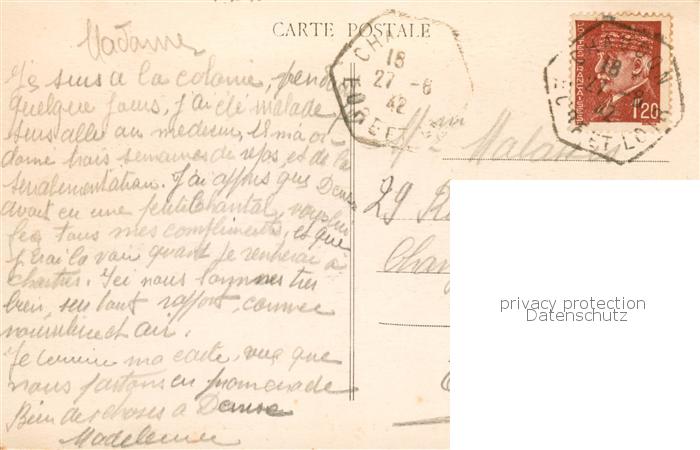 CARTE POSTALE
Madame
Je suis à la colonie,
quelque jours, j'ai été malade
suis allé au medecin, il m'a or-
donné trois semaines de repos et de la
suralimentation. J'ai appris que Denise
avait eu une petite Chantal, vous lui
fer tous mes compliments, et que
j'irai la voir quand je rentrerai à
chartres. Ici nous sommes très
bien, sur tout rapport, comme
nourriture et air.
Je termine ma carte, vu que
nous partons en promenade
Bien des choses à Denise
Madeleine
18
27 -8
42
EURE ET
Mme
29 R
18
27
42
EURE ET LOIR
POSTES FRANÇAISES
1F20
privacy protection
Datenschutz